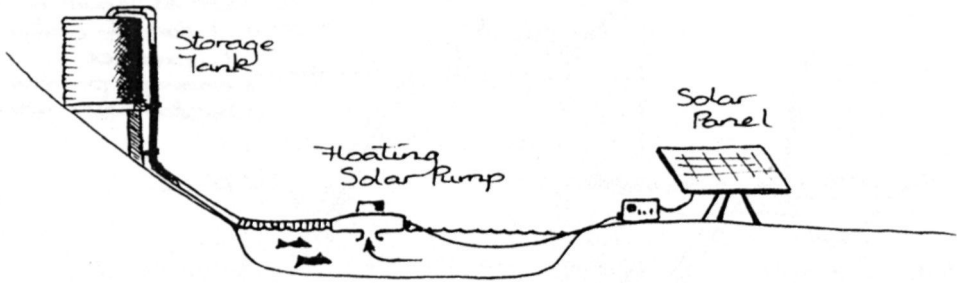 Storage
Tank
Floating
Solar Pump
Solar
Panel